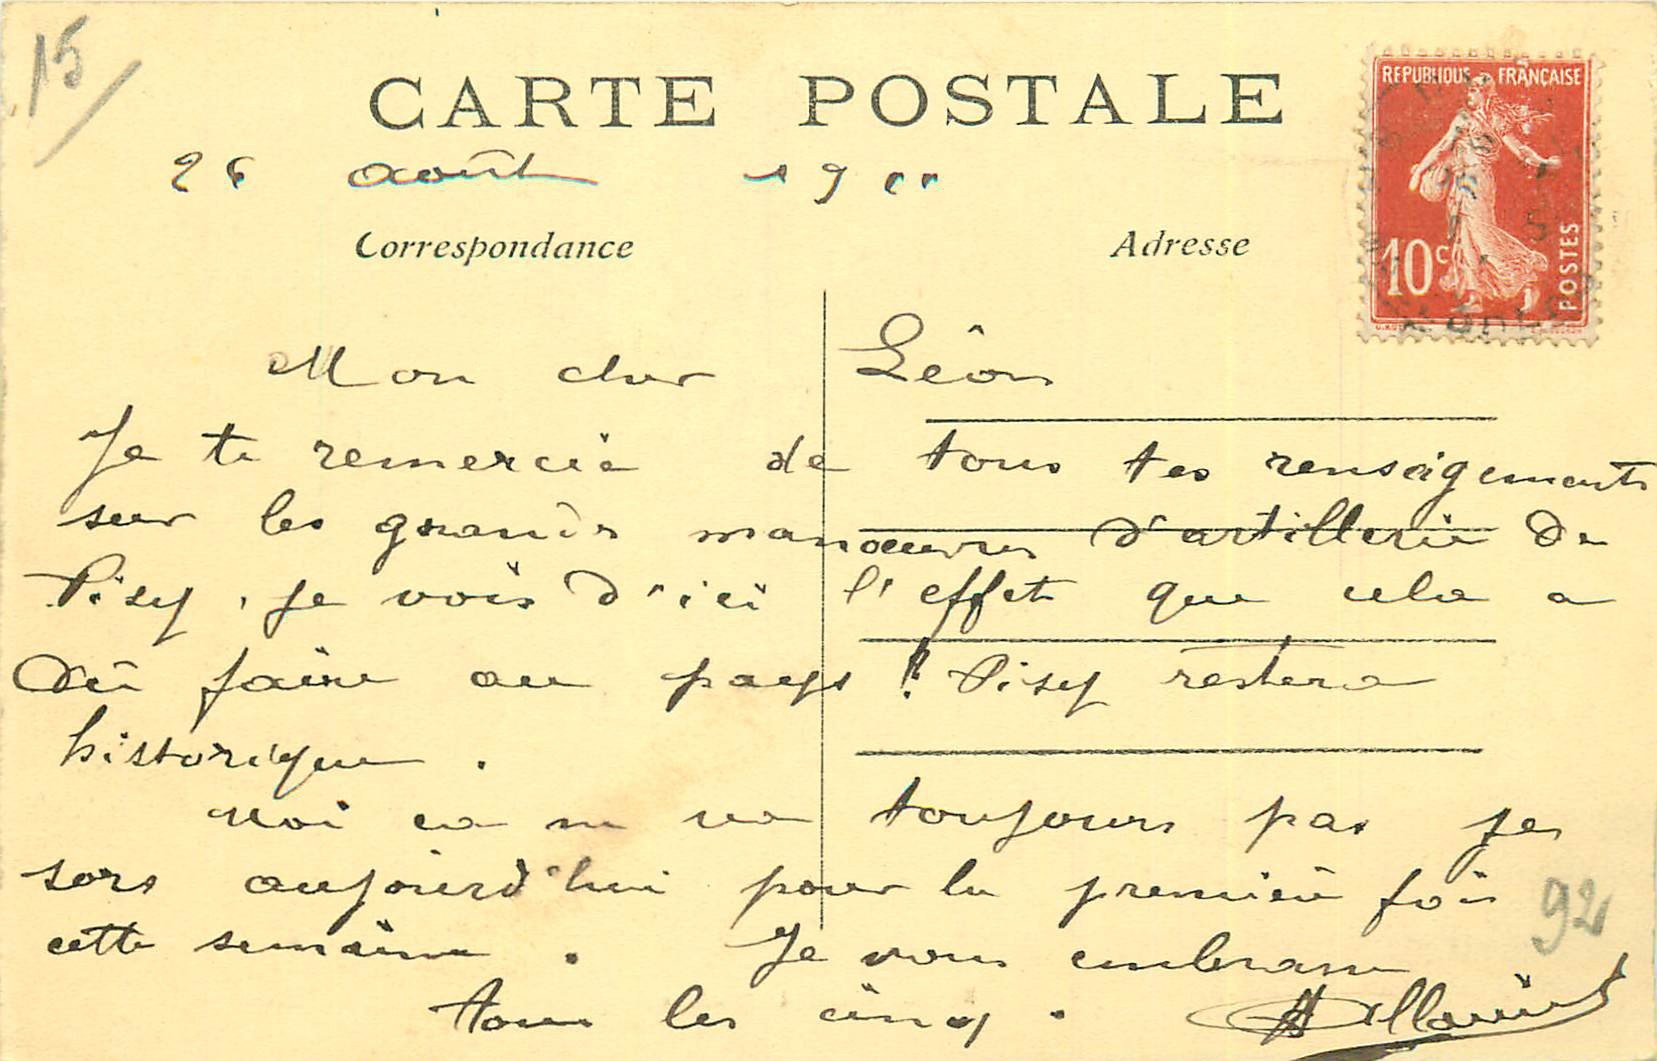 15
CARTE POSTALE
REPUBLIQUE FRANÇAISE
26 août 19
Correspondance
Adresse
10c
POSTES
Mon cher Léon
Je te remercie de tous tes renseignements
sur les grandes manœuvres d'artillerie de
Pisy, je vois d'ici l'effet que cela a
dû faire au pays ! Pisy restera
historique .
Moi ça ne va toujours pas je
sors aujourd'hui pour la première fois
cette semaine . Je vous embrasse
tous les cinq .
92